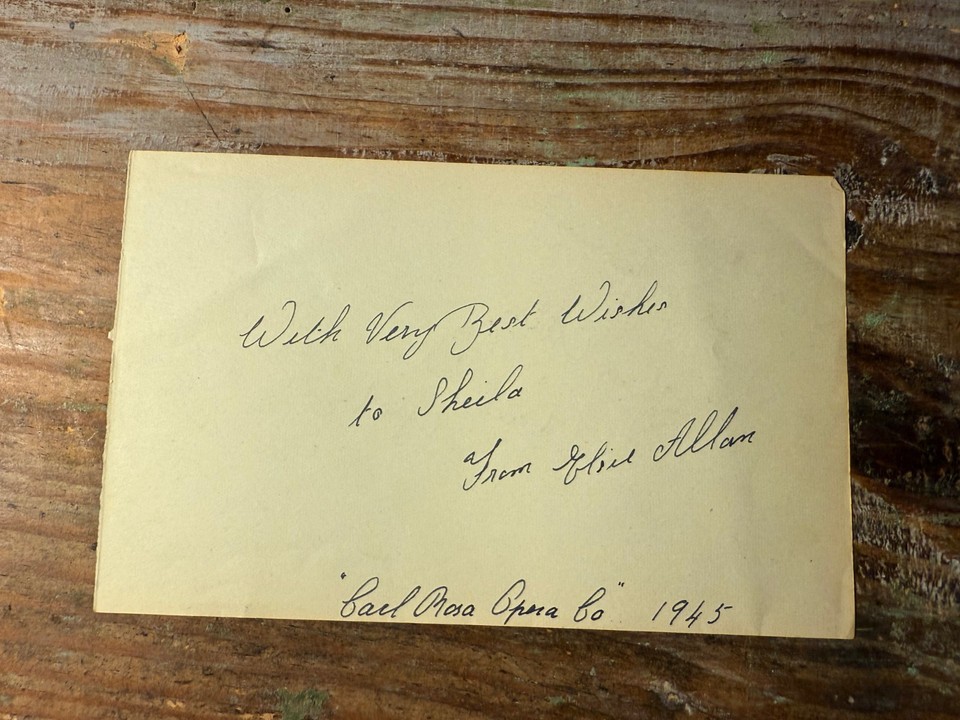 With Very Best Wishes
to Sheila
From Elsie Allan
"Carl Rosa Opera Co" 1945